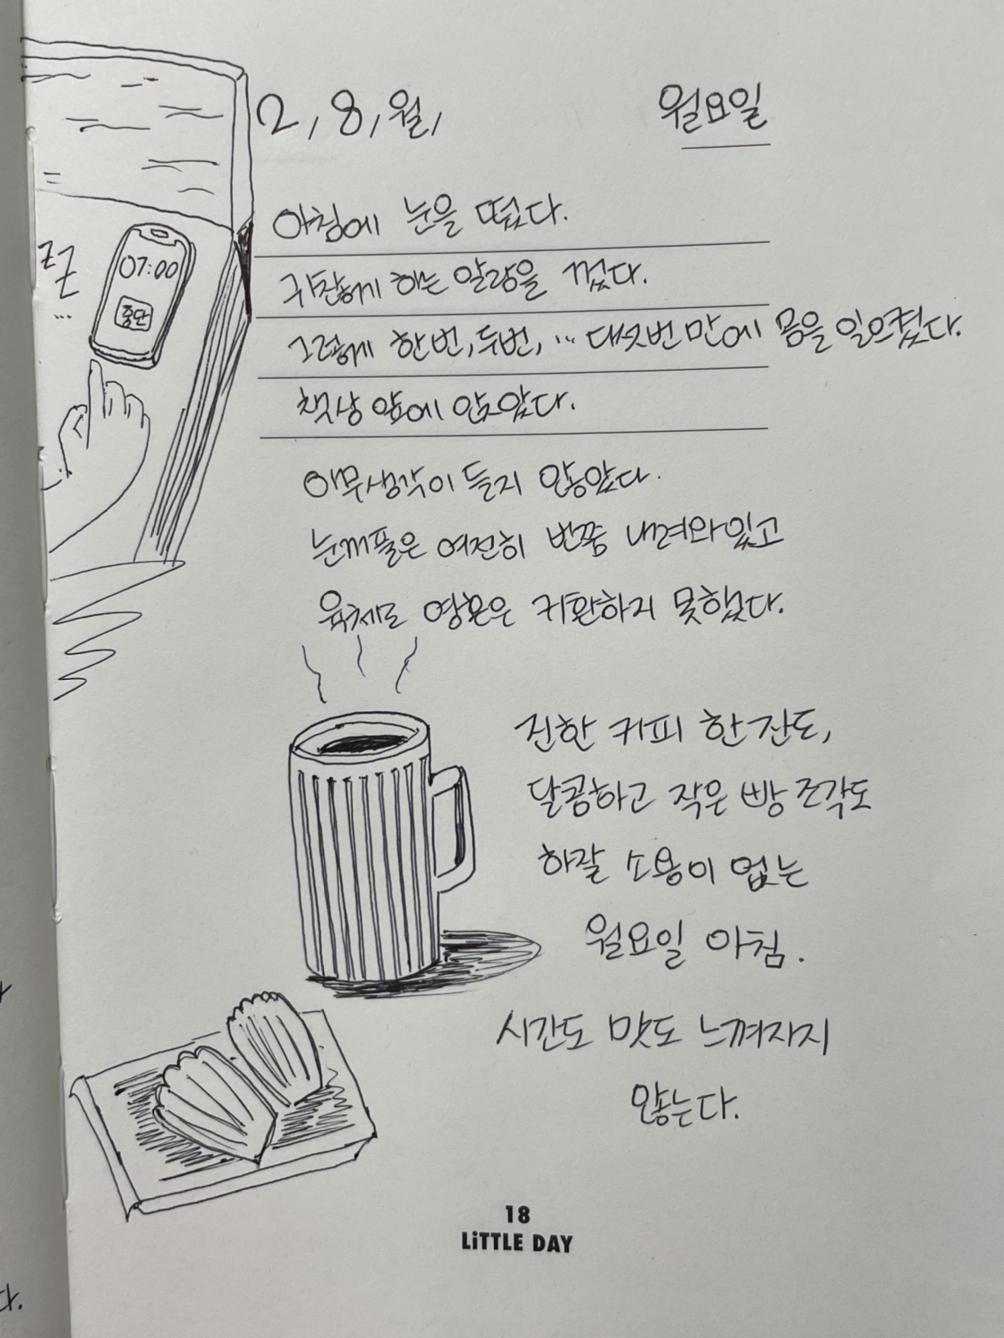 2, 8, 월,
월요일
아침에 눈을 떴다.
귀찮게 하는 알람을 껐다.
그렇게 한번, 두번, … 대섯번 만에 몸을 일으켰다.
zzz
...
07:00
중단
책상 앞에 앉았다.
아무생각이 들지 않았다.
눈꺼풀은 여전히 반쯤 내려와있고
육체로 영혼은 귀환하지 못했다.
진한 커피 한 잔도,
달콤하고 작은 빵 조각도
하잘 소용이 없는
월요일 아침.
시간도 맛도 느껴지지
않는다.
18
LiTTLE DAY
다.